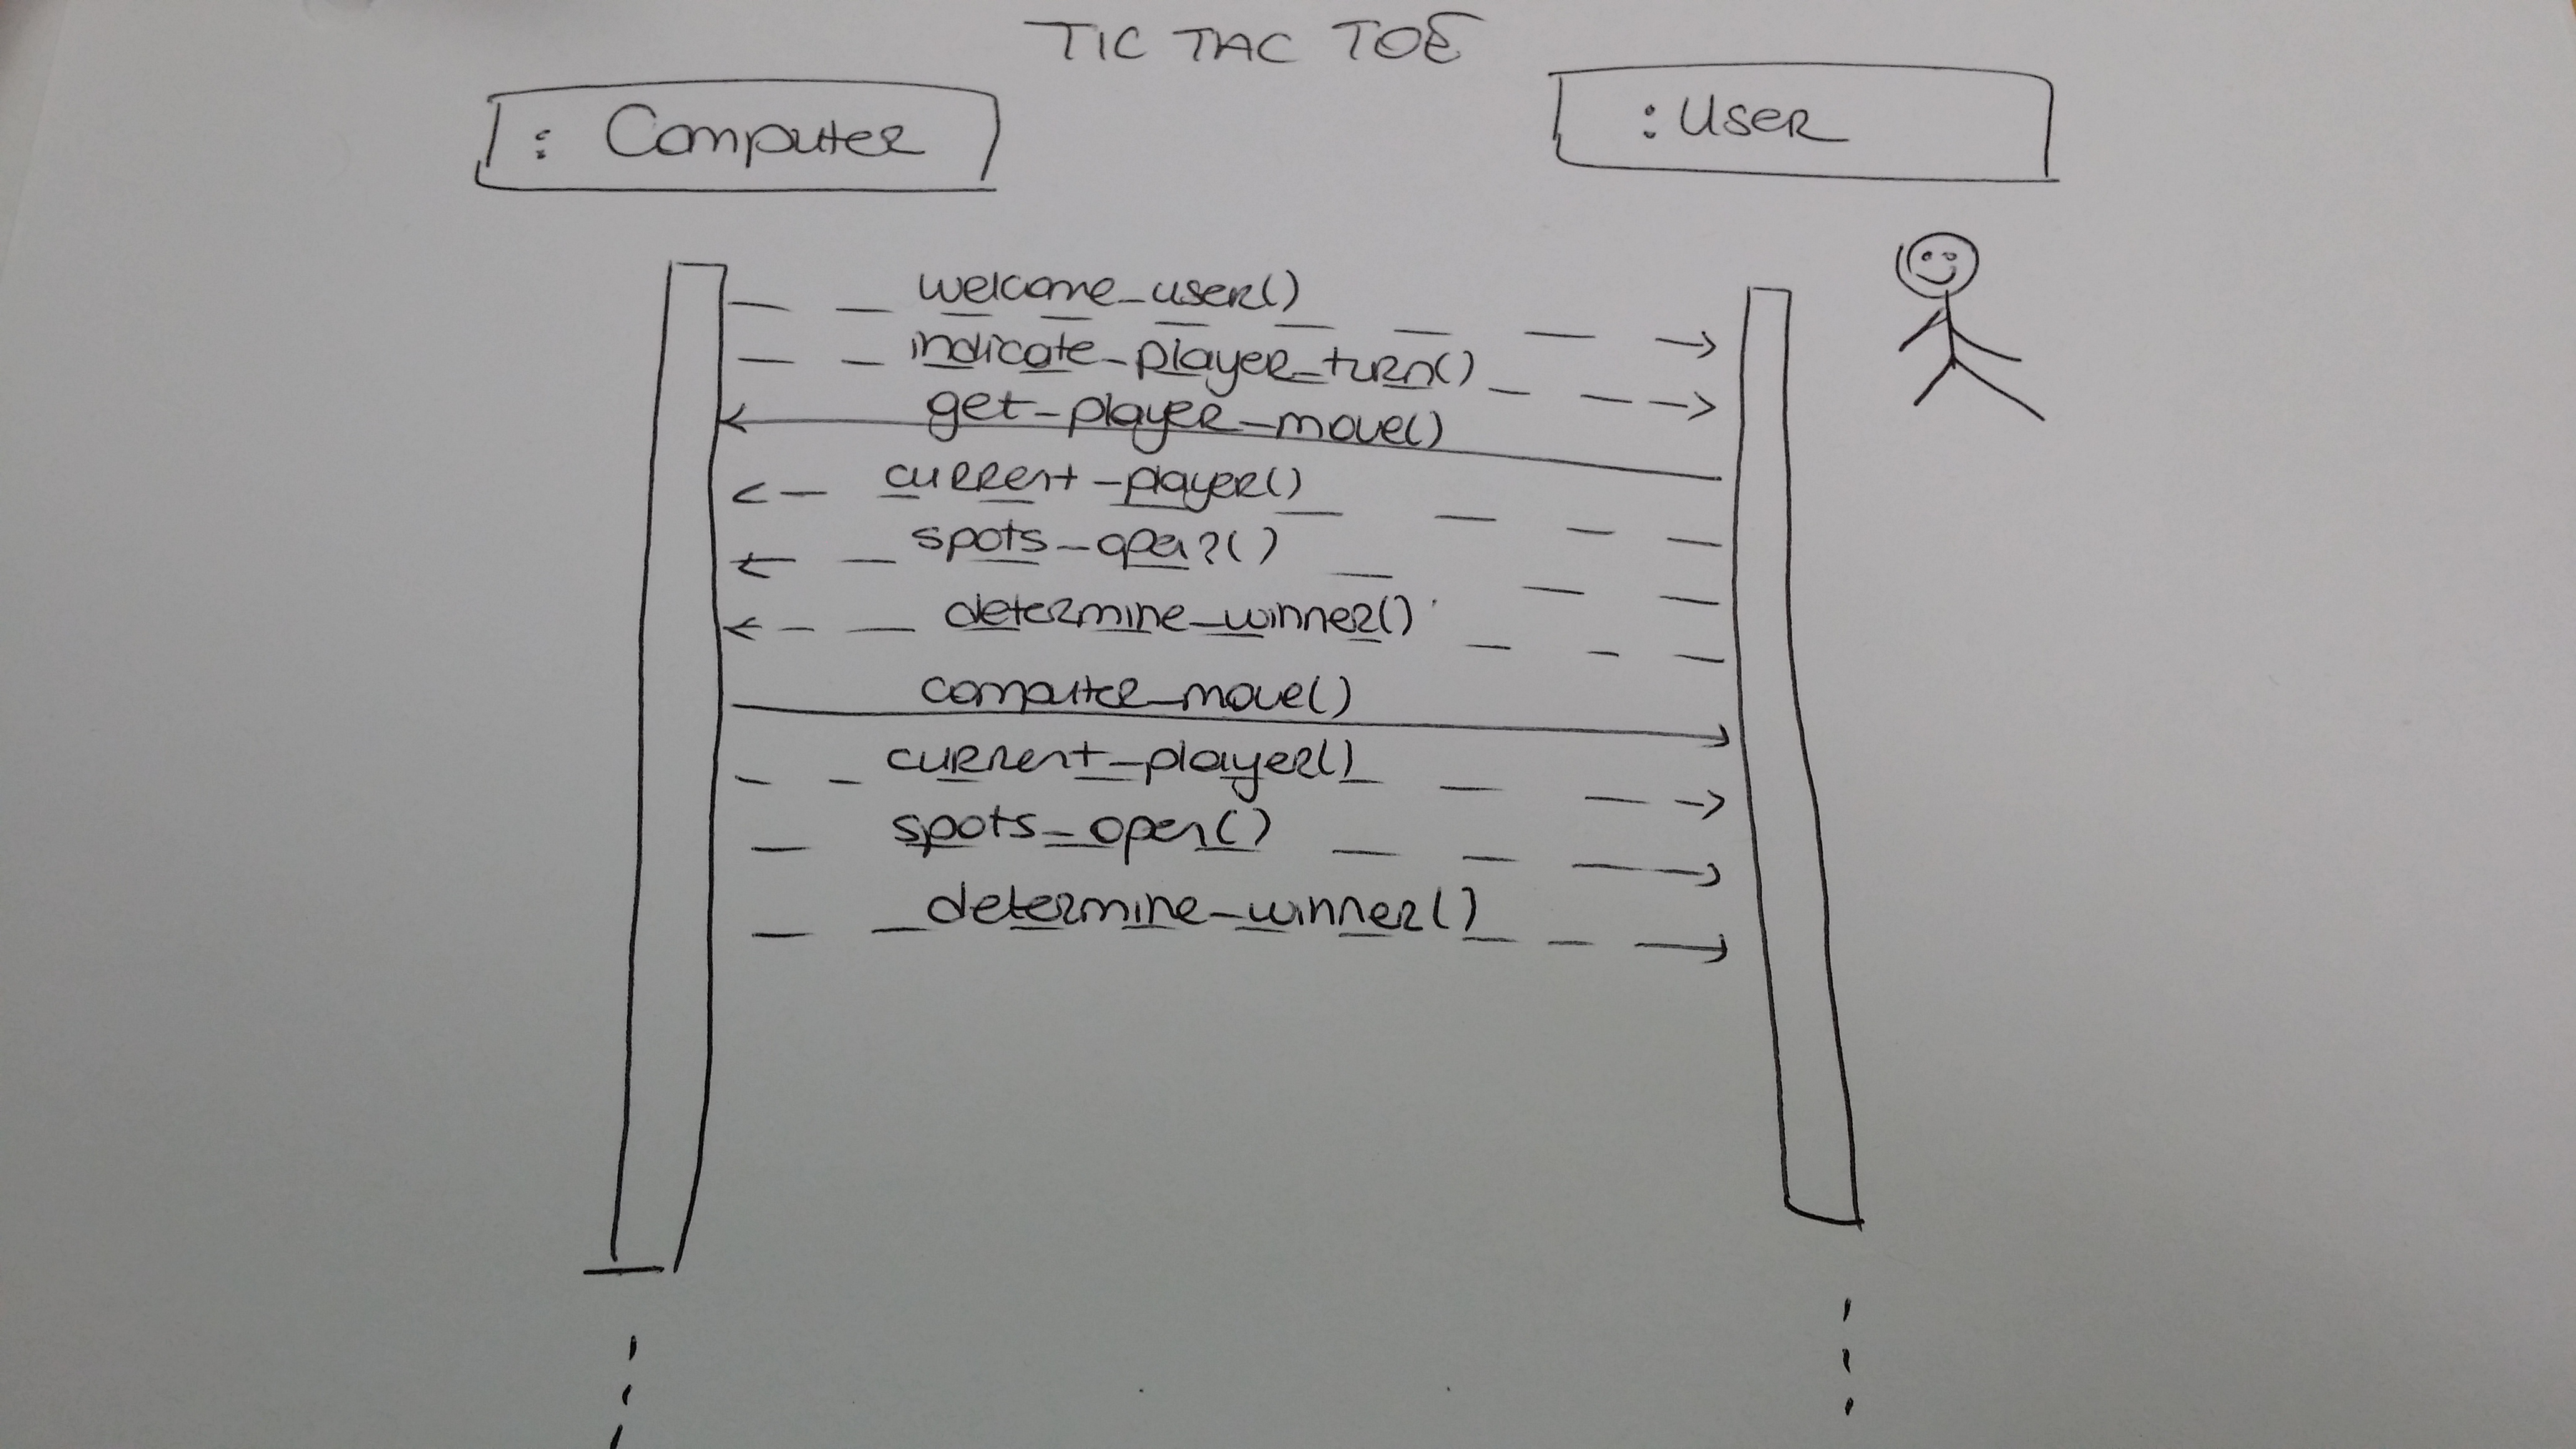 TIC TAC TOE
: Computer
: User
welcome_user()
indicate_player_turn()
get_player_move()
current_player()
spots_open?()
determine_winner()
computer_move()
current_player()
spots_open()
determine_winner()